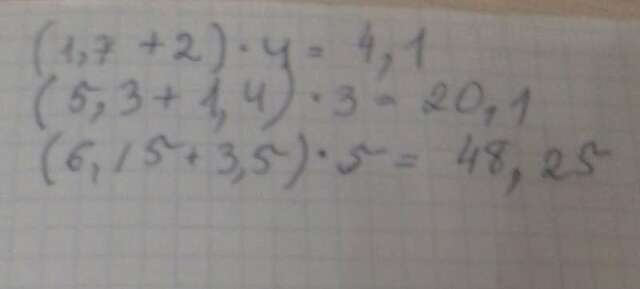 (1,7 + 2) · 4 = 4,1
(5,3 + 1,4) · 3 = 20,1
(6,15 + 3,5) · 5 = 48,25